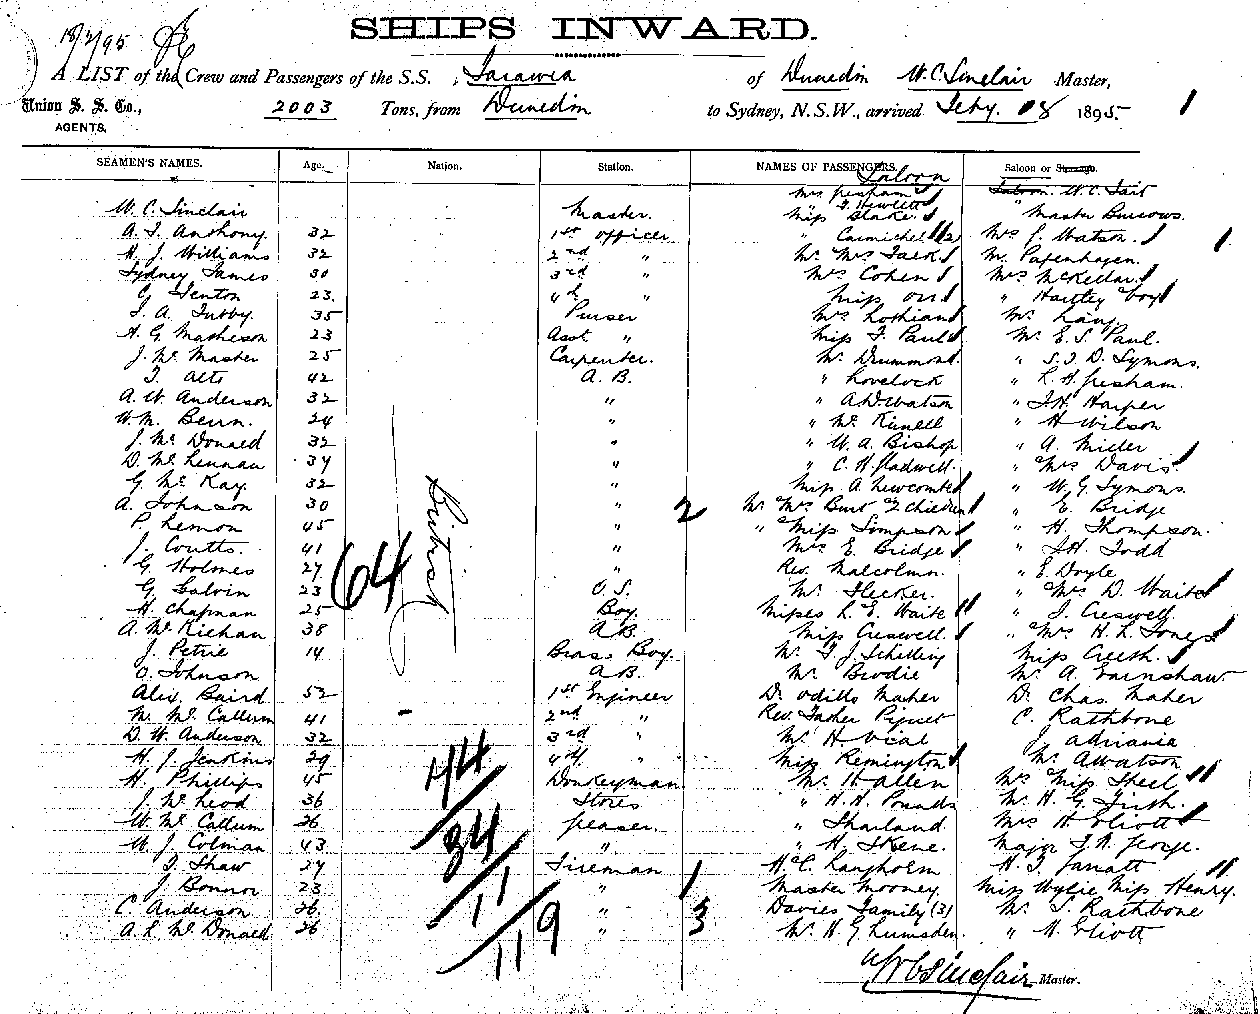 SHIPS INWARD.
18/2/95
A LIST of the Crew and Passengers of the S.S. Tarawera of Dunedin W.C. Sinclair Master,
Union S. S. Co., 2003 Tons, from Dunedin to Sydney, N.S.W., arrived Feby. 18 1895
AGENTS.
1
SEAMEN'S NAMES. Age. Nation. Station. NAMES OF PASSENGERS. Saloon or Steerage.
Saloon
Mrs Gresham Saloon W.C. Tait
" Hewlett
W. C. Sinclair Master. Miss Blake " Master Burrows.
A. J. Anthony 32 1st Officer " Carmichel (2) Mrs J. Watson.
H. J. Williams 32 2nd " Mr Mrs Jack Mr Papenhagen.
Sydney James 30 3rd " Mrs Cohen Mrs McKellar
C. Fenton 23. 4th " Miss Orr " Hartley boy
T. A. Tubby 35 Purser Mrs Lothian Mr Lang.
H. G. Matheson 23 Asst " Miss F. Paul Mr E. S. Paul.
J. McMaster 25 Carpenter. Mr Drummond " S.F.D. Symons.
42 A.B. " Lovelock " L. H. Gresham.
A. W. Anderson 32 " " A.D. Watson " J.H. Harper
W. M. 24 " " H Wilson
J. McDonald 32 " " W. A. Bishop " A. Miller
D. McLennan 34 " " C. H. Gladwell. " Mrs Davis
G. McKay. 32 " Miss A. Newcombe " W. G. Symons.
A. Johnson 30 " 2 Mr Mrs Burt 2 children " E. Bridge
P. Lemon 45 " " Miss Simpson " H. Thompson.
J. Coutts. 41 " Mrs E. Bridge " J.H. Todd
G. Holmes 27 " Rev. Malcolmn. " E. Doyle
G. Galvin 23 O.S. Mr Flecker. " Mrs D. Waite
H. Chapman 25 Boy. Misses L. E. Waite " J. Creswell.
A. McKichan 38 A.B. Miss Creswell. " Mrs H. L. Jones
J. Petrie 14 Brass Boy. Mr F. J. Schilling Miss
O. Johnson A.B. Mr Brodie Mr A. Earnshaw
Alex. Baird 52 1st Engineer Dr Odillo Maher Dr Chas. Maher
M. McCallum 41 2nd " Rev. Father Piquet C. Rathbone
D. W. Anderson 32 3rd " Mr H Vial J.
H. J. Jenkins 29 4th " Miss Remington Mr A Watson
H. Phillips 45 Donkeyman Mr H Allen Mrs Miss Steel
J. McLeod 36 Stores " H. H. Pounds Mr H. G. Firth.
W. McCallum 26 Greaser. " Mrs H. Eliott
W. J. Colman 43 " " H. Skene. Major F. N. George.
T. Shaw 27 Fireman H. C. Langholm H. J. Jarratt
J. Bonnor 23 " 1 Master Mooney Miss Wylie Miss Henry.
C. Anderson 26 " 3 Davies Family (3) Mr S. Rathbone
A. L. McDonald 26 " Mr H. G. Lumsden " H. Eliott
British
64
44
34
11
119
W C Sinclair Master.